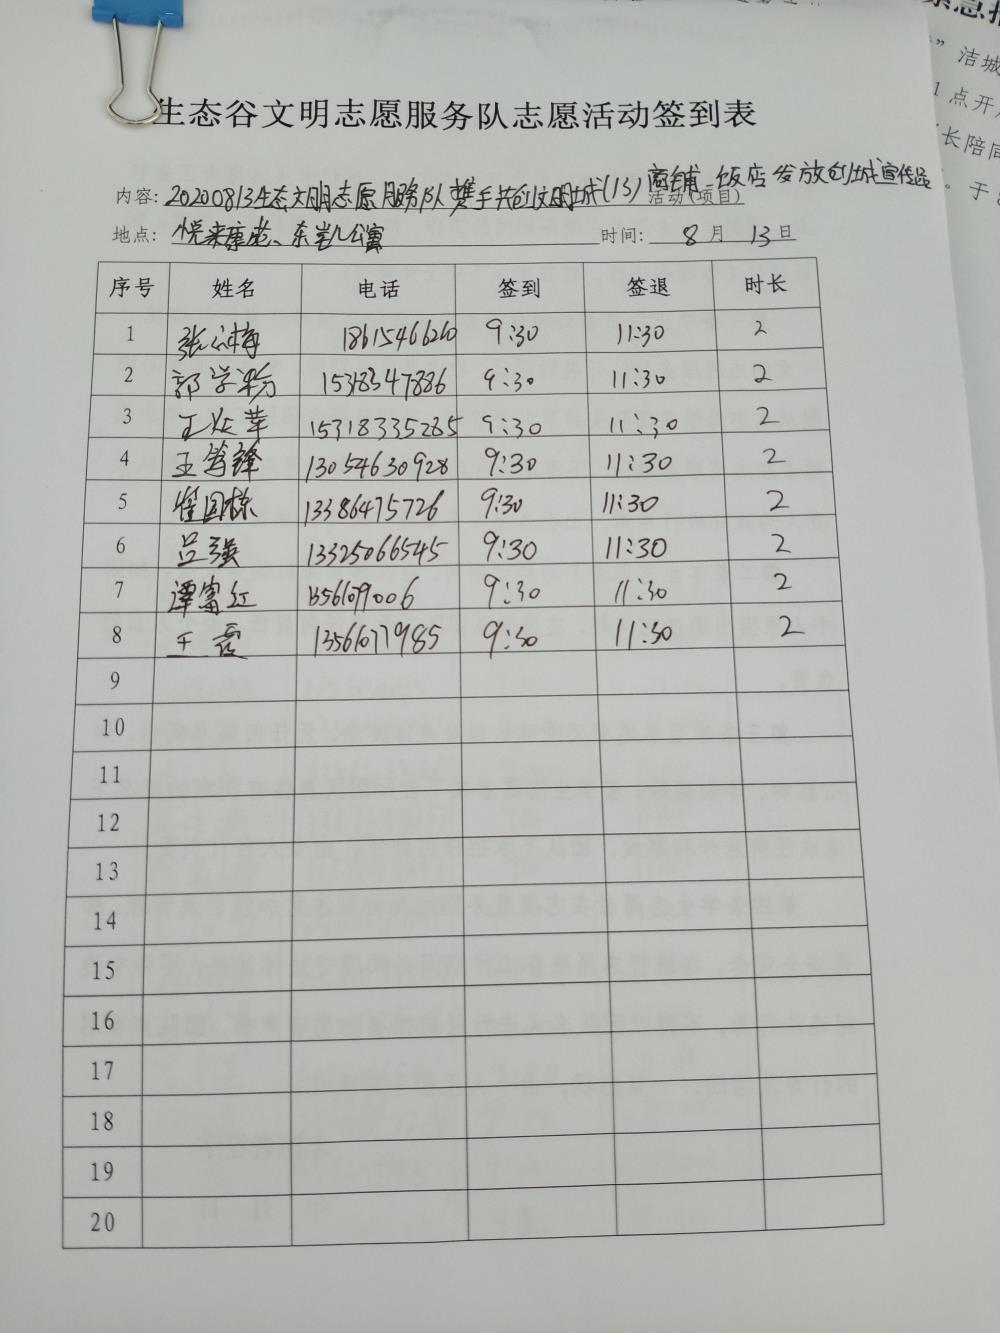 生态谷文明志愿服务队志愿活动签到表
内容: 20200813生态文明志愿服务队携手共创文明城(13)商铺、饭店发放创城宣传品 活动(项目)
地点: 悦来康老、东岸公寓 时间: 8月13日
序号 姓名 电话 签到 签退 时长
1 张 梅 18615466260 9:30 11:30 2
2 郭学 15318347886 9:30 11:30 2
3 王 苹 15318335285 9:30 11:30 2
4 王 锋 13054630928 9:30 11:30 2
5 崔国栋 13386475726 9:30 11:30 2
6 吕强 13325066545 9:30 11:30 2
7 谭富红 9:30 11:30 2
8 王 13561077985 9:30 11:30 2
9
10
11
12
13
14
15
16
17
18
19
20
” 洁城
1点开
长陪同
。于